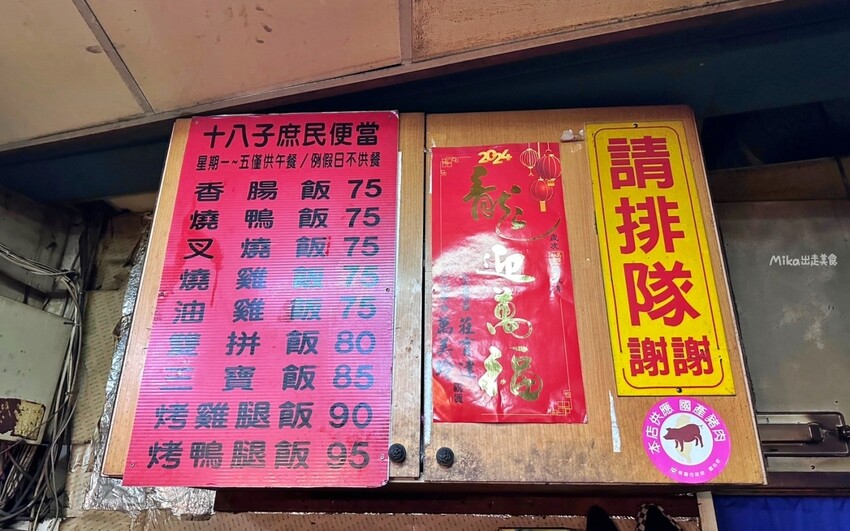 十八子庶民便當
星期一~五僅供午餐/例假日不供餐
香腸飯 75
燒鴨飯 75
叉燒飯 75
燒雞飯 75
油雞飯 75
雙拼飯 80
三寶飯 85
烤雞腿飯 90
烤鴨腿飯 95
2024
龍迎萬福
請排隊
謝謝
本店供應 國產豬肉
Mika出走美食